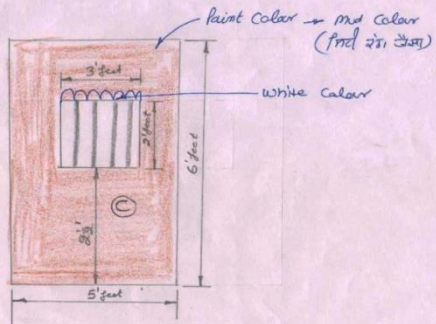 Paint Colour → Mud Colour
(मिटी रंग जैसा)
3' feet
White Colour
2' feet
6' feet
C
2½'
5' feet